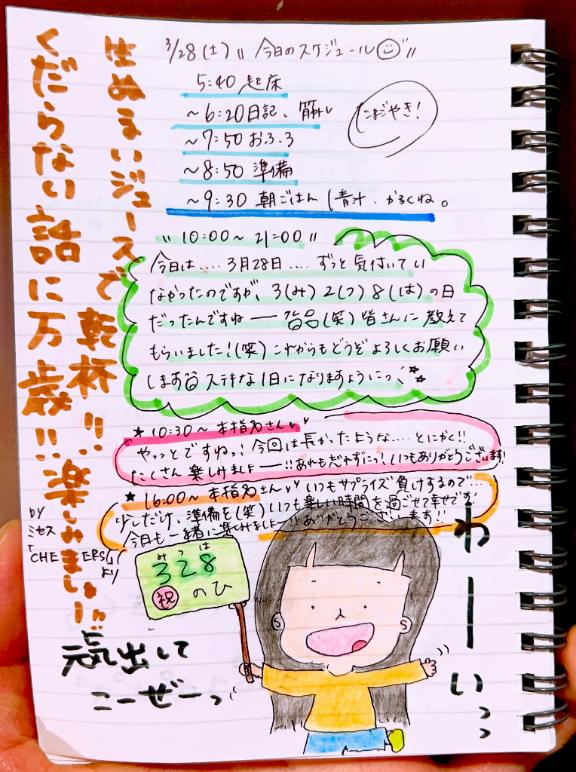 3/28(土) 〃今日のスケジュール〃
5:40 起床
~6:20 日記、筋トレ
~7:50 おふろ
~8:50 準備
~9:30 朝ごはん(青汁、かるくね。
たまごやき!
〃10:00~21:00〃
今日は……3月28日……ずっと気付いてい
なかったのですが、3(み)2(つ)8(は)の日
だったんですねー (笑)皆さんに教えて
もらいました!(笑)これからもどうぞよろしくお願い
します ステキな1日になりますようにっ
★10:30~本指名さん
やっっとですねっ!今回は長かったような……とにかく!!
たくさん楽しみましょーー!!あれもだせずにっ!いつもありがとうございます!
★16:00~本指名さん いつもサプライズ負けするので…
少しだけ、準備を(笑)いつも楽しい時間を過ごせて幸せです!
今日も一緒に楽しみましょー!!ありがとうございます!!
生ぬるいジュースで乾杯!!
くだらない話に万歳!!楽しみましょー!!
by
ミセス
CHEERS
より
みつは
328
祝のひ
わーーいっっ
元気出して
こーぜーっ